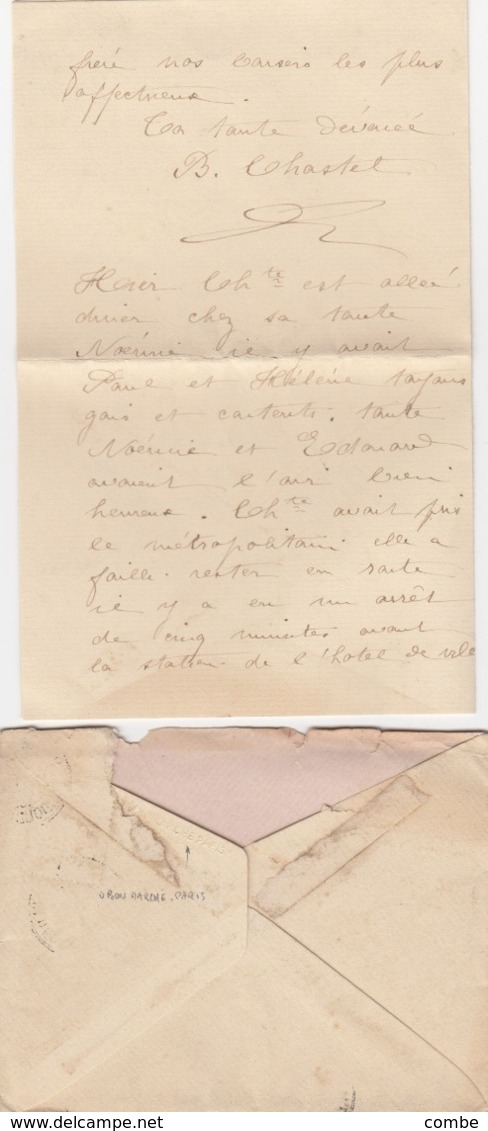 frère nos baisers les plus
affectueux.
Ta tante dévouée
B. Chastel
Hier Chte est allée
diner chez sa tante
Noémie il y avait
Paul et Hélène toujours
gais et contents. tante
Noémie et Edouard
avaient l'air bien
heureux. Chte avait pris
le métropolitain elle a
failli rester en route
il y a eu un arrêt
de cinq minutes avant
la station de l'hotel de ville
PARIS
O BON MARCHE. PARIS
combe
delcampe.net